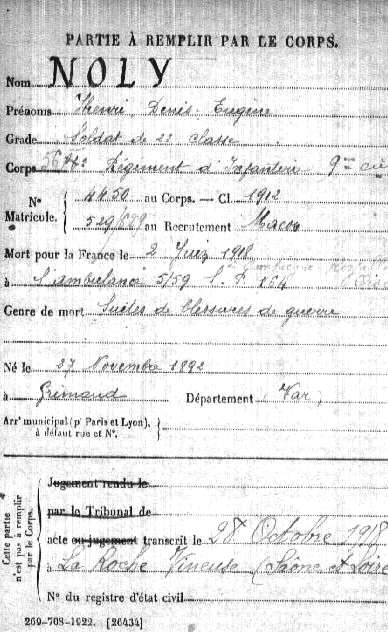 PARTIE À REMPLIR PAR LE CORPS.
Nom NOLY
Prénoms Henri, Denis Eugène
Grade Soldat de 2e classe
Corps 56e Régiment d'Infanterie 9me Cie
N° Matricule. 4450 au Corps. — Cl. 1912
529 au Recrutement Macon
Mort pour la France le 2 Juin 1918
à l'ambulance 5/59 S. P. 164
Genre de mort Suites de blessures de guerre
Né le 27 Novembre 1892
à Grimaud Département Var,
Arrt municipal (pr Paris et Lyon),
à défaut rue et N°.
Cette partie n'est pas à remplir par le Corps.
Jugement rendu le
par le Tribunal de
acte ou jugement transcrit le 28 Octobre 1918
à La Roche Vineuse (Saône et Loire
N° du registre d'état civil
269-708-1922. [26434]